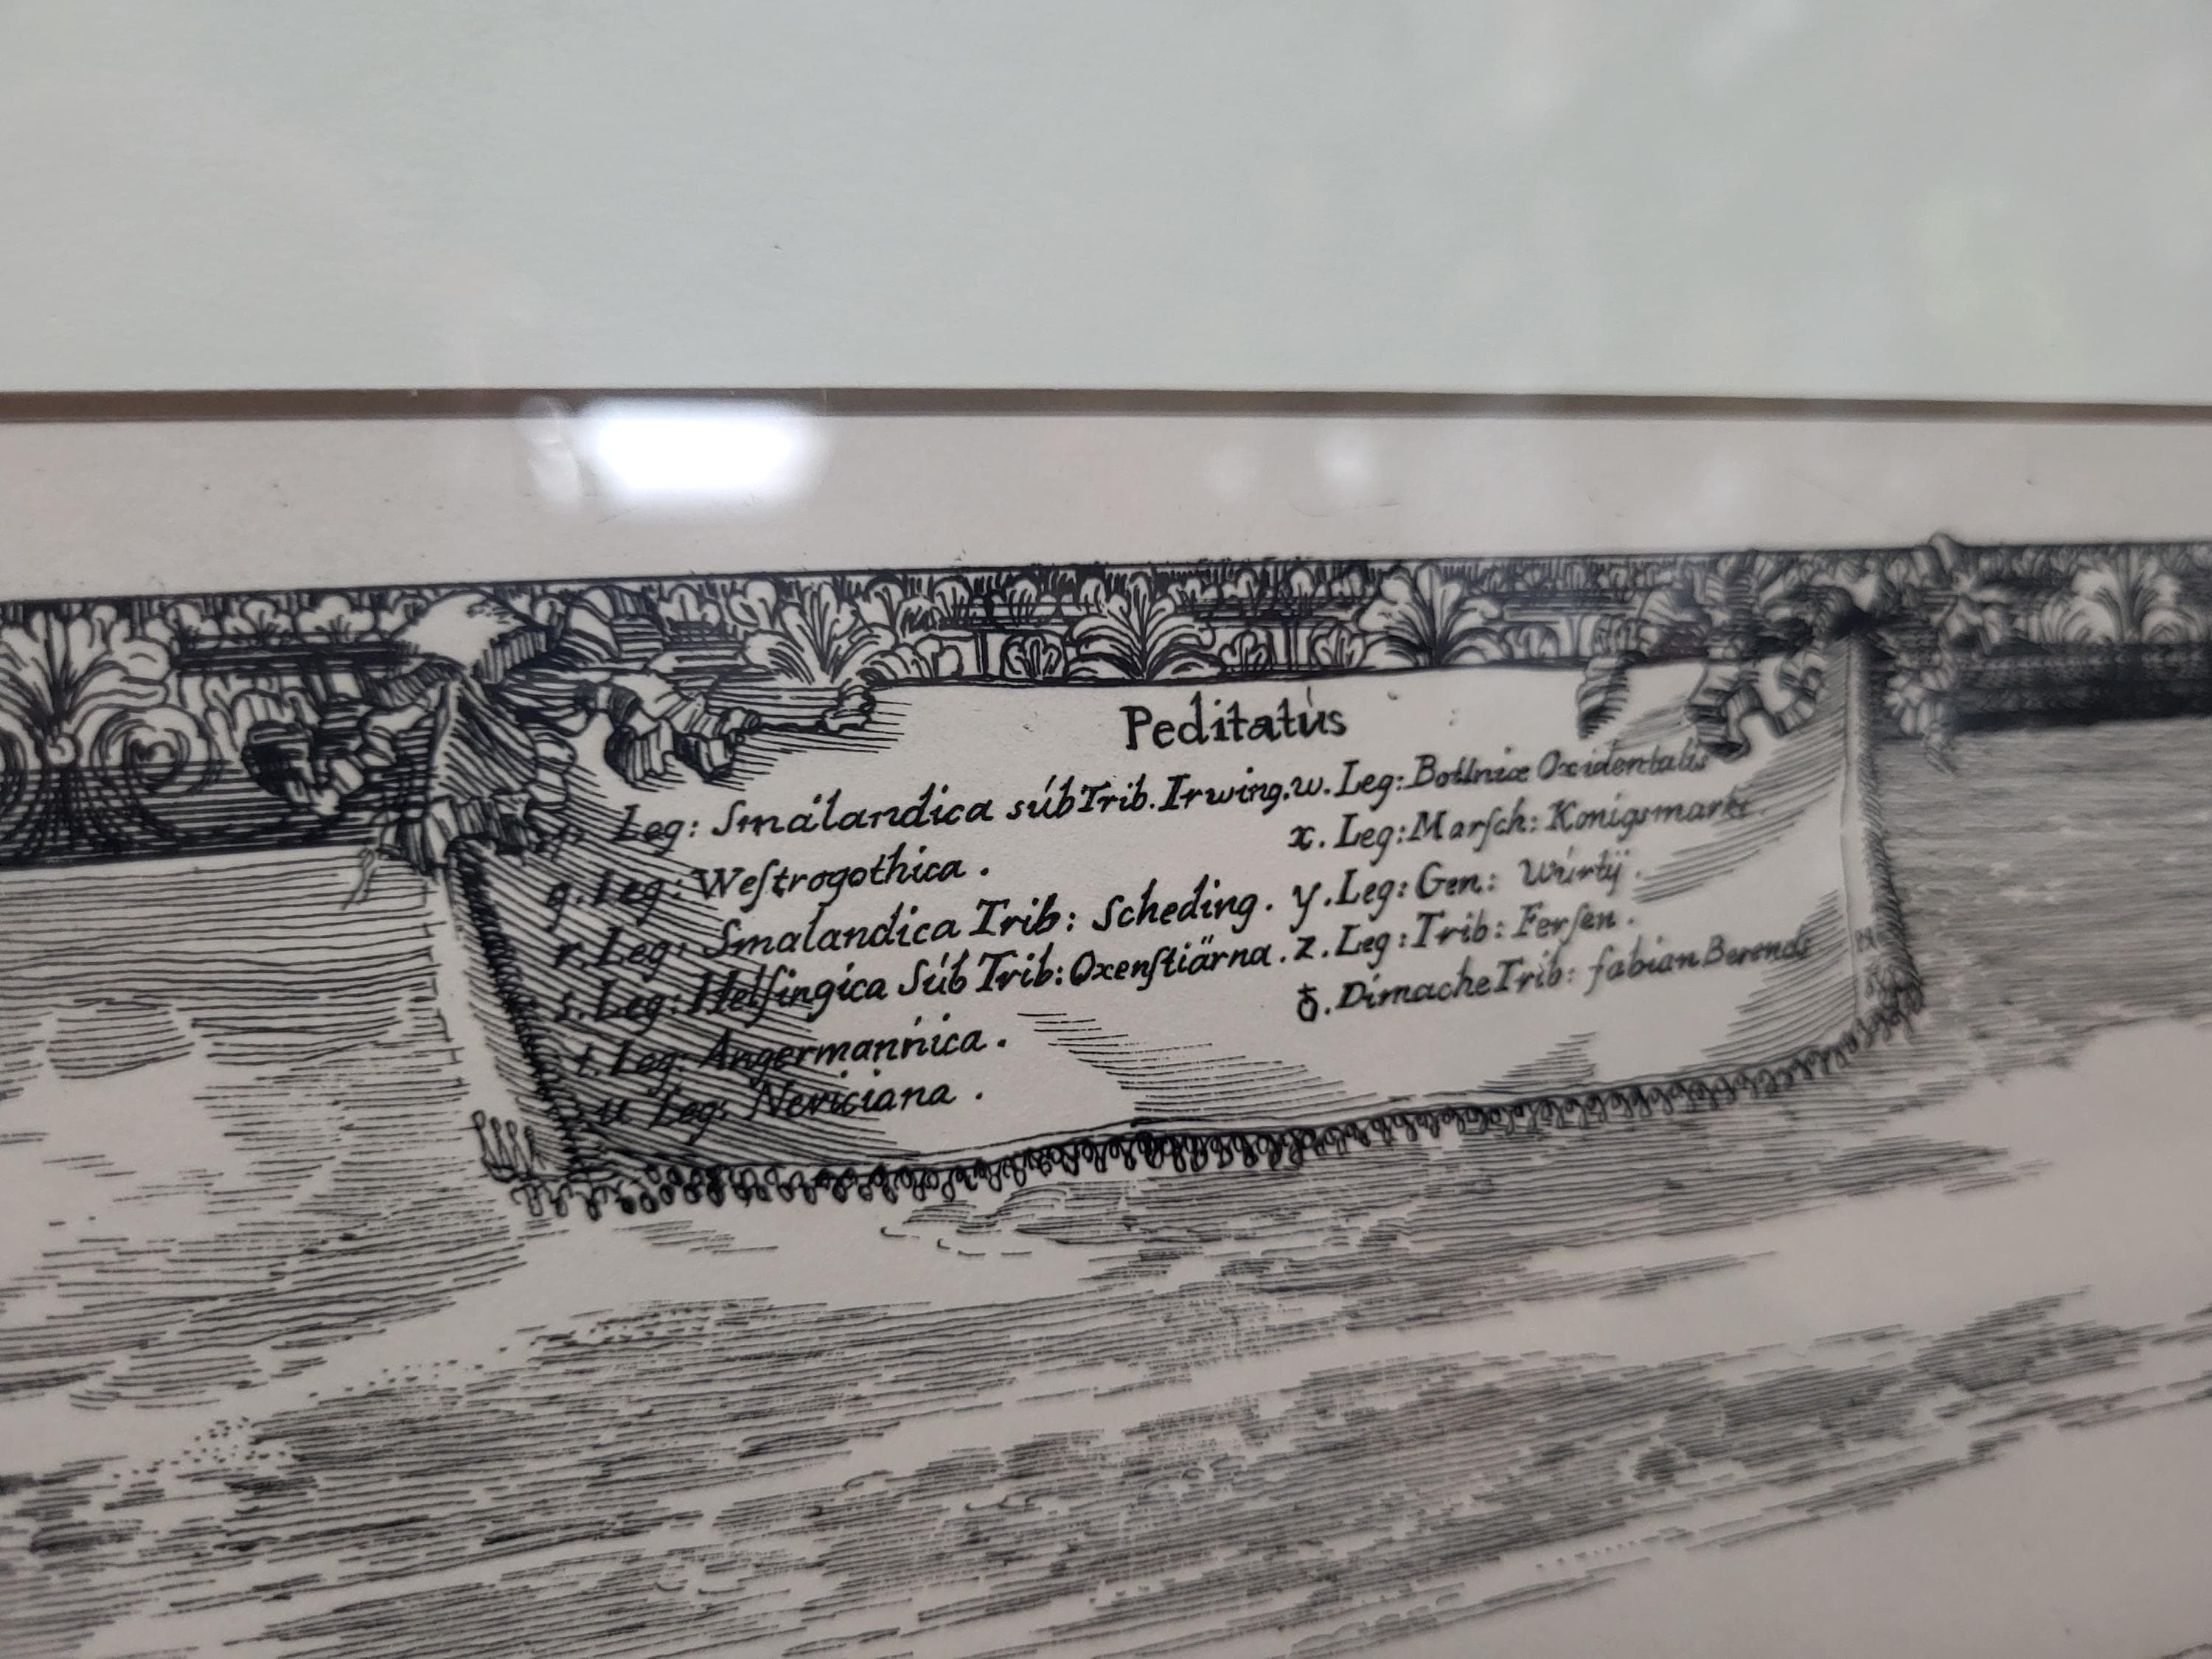 Peditatús
Leg: Smálandica súb Trib. Irwing.
q. Leg: Weſtrogothica.
r. Leg: Smalandica Trib: Scheding.
s. Leg: Helſingica Súb Trib: Oxenſtiärna.
t. Leg: Angermanńica.
u Leg: Nericiana.
w. Leg: Botlniæ Oxidentalis
x. Leg: Marſch: Konigsmarki
y. Leg: Gen: Würtij.
z. Leg: Trib: Ferſen.
Dimache Trib: fabian Berends